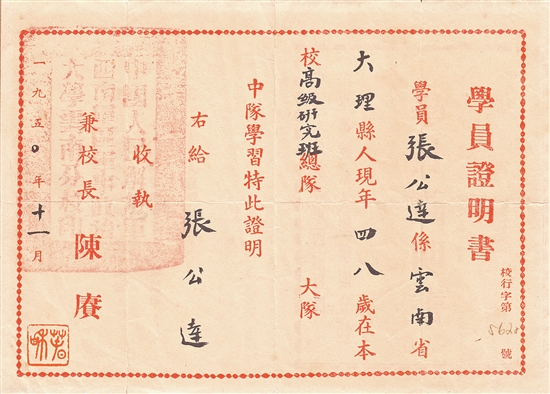 學員證明書
校行字第 號
學員張公達係雲南省
大理縣人現年四八歲在本
校高級研究班總隊 大隊
中隊學習特此證明
右給 張公達
收執
兼校長 陳賡
一九五〇年十一月